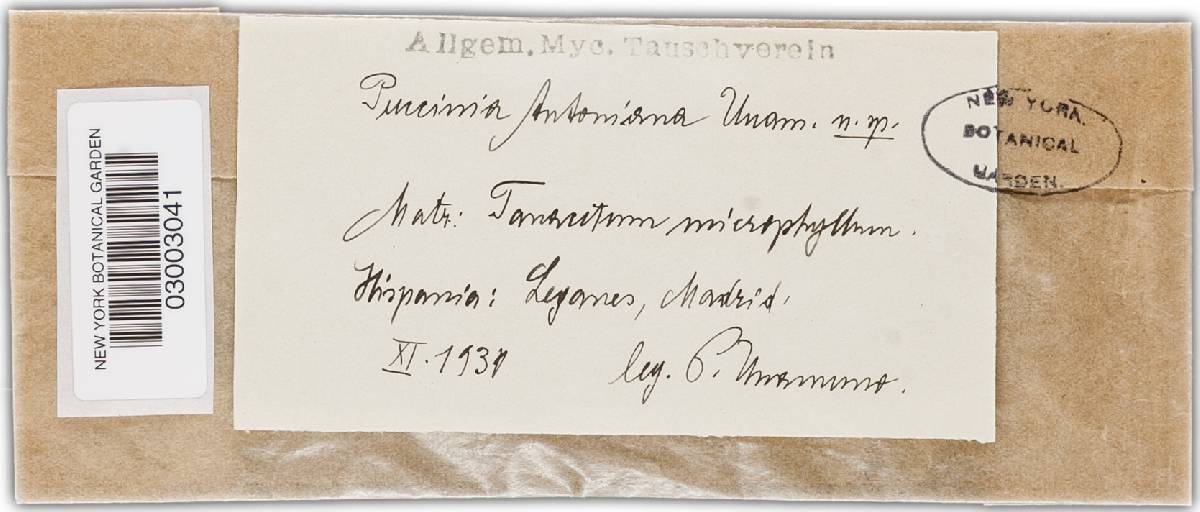 Allgem. Myc. Tauschverein
Puccinia Antoniana Unam. n. sp.
Matr: Tanacetum microphyllum.
Hispania: Leganes, Madrid.
XI. 1931 leg. P. Unamuno.
NEW YORK
BOTANICAL
GARDEN.
NEW YORK BOTANICAL GARDEN
03003041